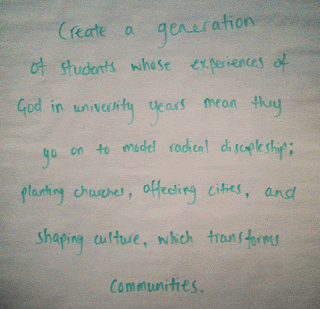 Create a generation
of students whose experiences of
God in university years mean they
go on to model radical discipleship;
planting churches, affecting cities, and
shaping culture, which transforms
communities.